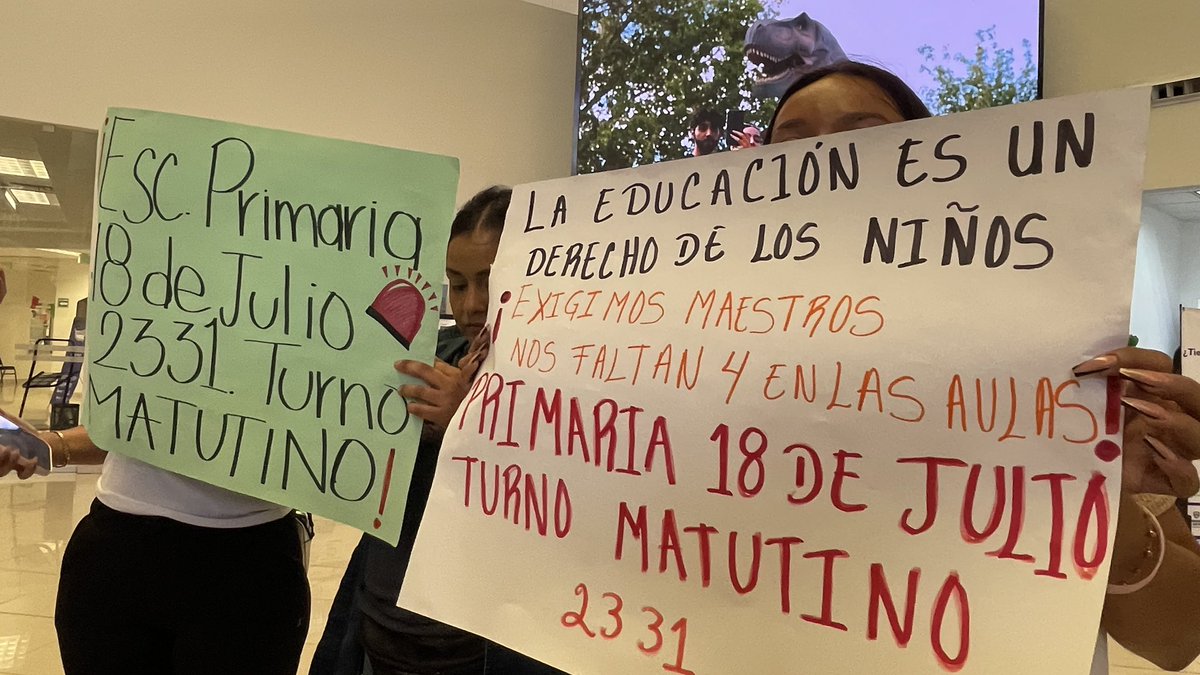 ¡Esc. Primaria
18 de Julio
2331. Turno
MATUTINO!
LA EDUCACIÓN ES UN
DERECHO DE LOS NIÑOS
¡EXIGIMOS MAESTROS
NOS FALTAN 4 EN LAS AULAS!
PRIMARIA 18 DE JULIO
TURNO MATUTINO
2331